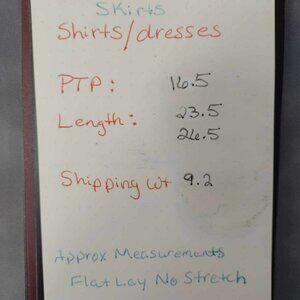 Skirts
Shirts/dresses
PTP: 16.5
Length: 23.5
26.5
Shipping wt 9.2
Approx Measurements
Flat Lay No Stretch